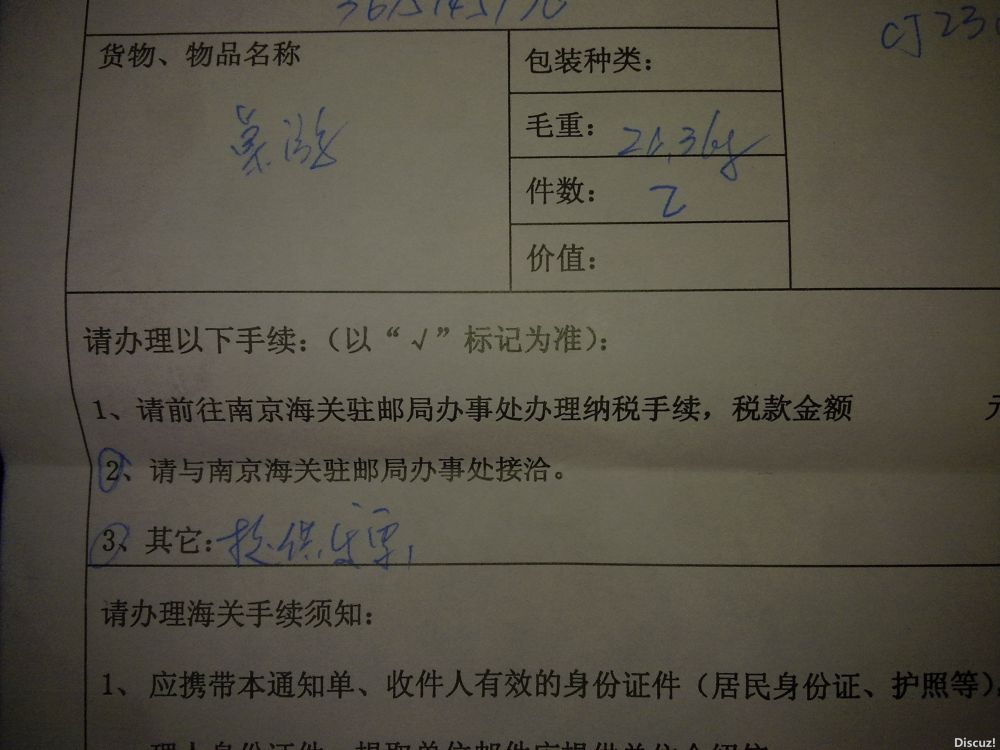 货物、物品名称
包装种类：
毛重：
件数：2
价值：
请办理以下手续：（以“√”标记为准）：
1、请前往南京海关驻邮局办事处办理纳税手续，税款金额 元
2、请与南京海关驻邮局办事处接洽。
3、其它：
请办理海关手续须知：
1、应携带本通知单、收件人有效的身份证件（居民身份证、护照等）
Discuz!